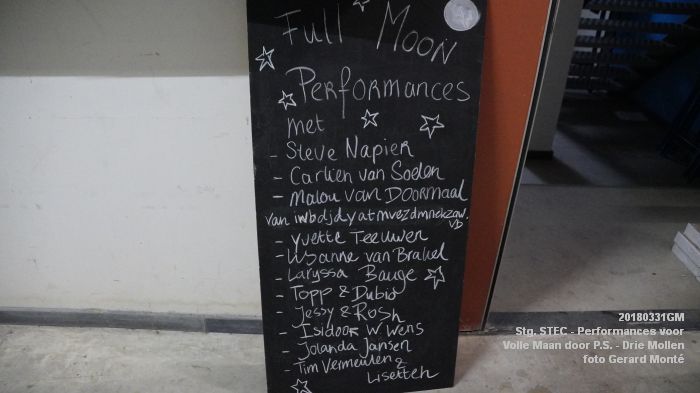 Full Moon
Performances
met
- Steve Napier
- Carlien van Soelen
- Malou van Doormaal
van iwbdjdyatmvezdmnekzaw.
vb
- Yvette Teeuwen
- Lisanne van Brakel
- Laryssa Bauge
- Topp & Dubio
- Jessy & Rosh
- Isidoor W. Wens
- Jolanda Jansen
- Tim Vermeulen &
Lisetteh
20180331GM
Stg. STEC - Performances voor
Volle Maan door P.S. - Drie Mollen
foto Gerard Monté